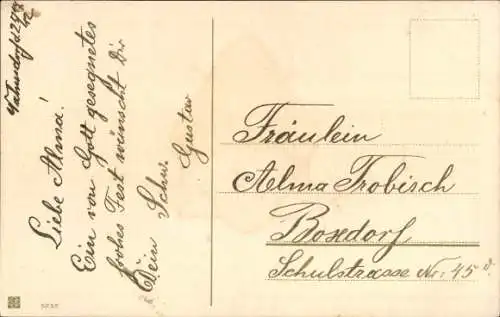 Liebe Alma!
Ein von Gott gesegnetes
frohes Fest wünscht Dir
Dein Schw. Gustav
Fräulein
Alma Trobisch
Boxdorf
Schulstrasse Nr. 45